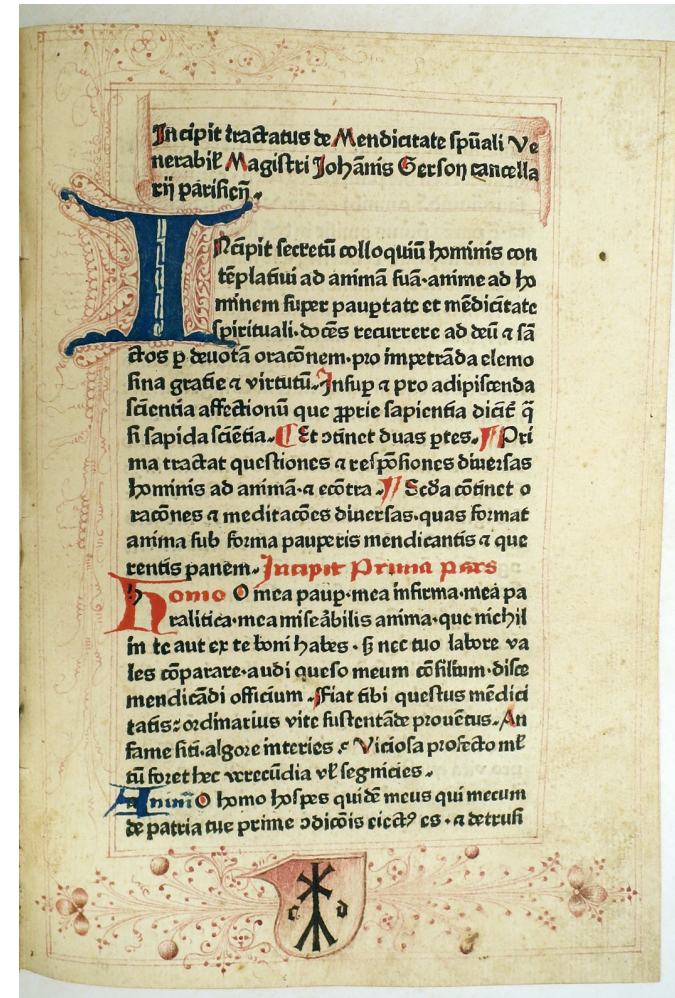 Incipit tractatus de Mendicitate spũali Ve
nerabiƚ Magistri Johãnis Gerson cancella
rij parisieñ.
INcipit secretũ colloquiũ hominis con
tẽplatiui ad animã suã·anime ad ho
minem super paupꝑtate et mẽdicitate
spirituali·docẽs recurrere ad deũ ⁊ sã
ctos ꝑ deuotã oracõnem·pro impetrãda elemo
sina gratie ⁊ virtutũ. Insuꝑ ⁊ pro adipiscenda
sciẽntia affectionũ que ꝓprie sapientia dicit̃ q̃
si sapida sciẽtia. Et ↄtinet duas ꝑtes. Pri
ma tractat questiones ⁊ respõsiones diuersas
hominis ad animã·⁊ ecõtra. Secũda cõtinet o
racõnes ⁊ meditacões diuersas·quas format
anima sub forma pauperis mendicantis ⁊ que
rentis panem. Incipit Prima pars
homo O mea pauꝑ·mea infirma·mea pa
ralitica·mea miseãbilis anima·que nichil
in te aut ex te boni habes·s̃ nec tuo labore va
les cõparare·audi queso meum cõsilium·disce
mendicãdi officium. Fiat tibi questus mẽdici
tatis: ordinarius vite sustentãde prouẽtus. An
fame siti·algore interies ? Viciosa profecto mƚ
tũ foret hec verecũdia vƚ segnicies.
anim̃ O homo hospes quidẽ meus qui mecum
de patria tue prime ↄdicõis eiectꝰ es·⁊ detrusi
c d